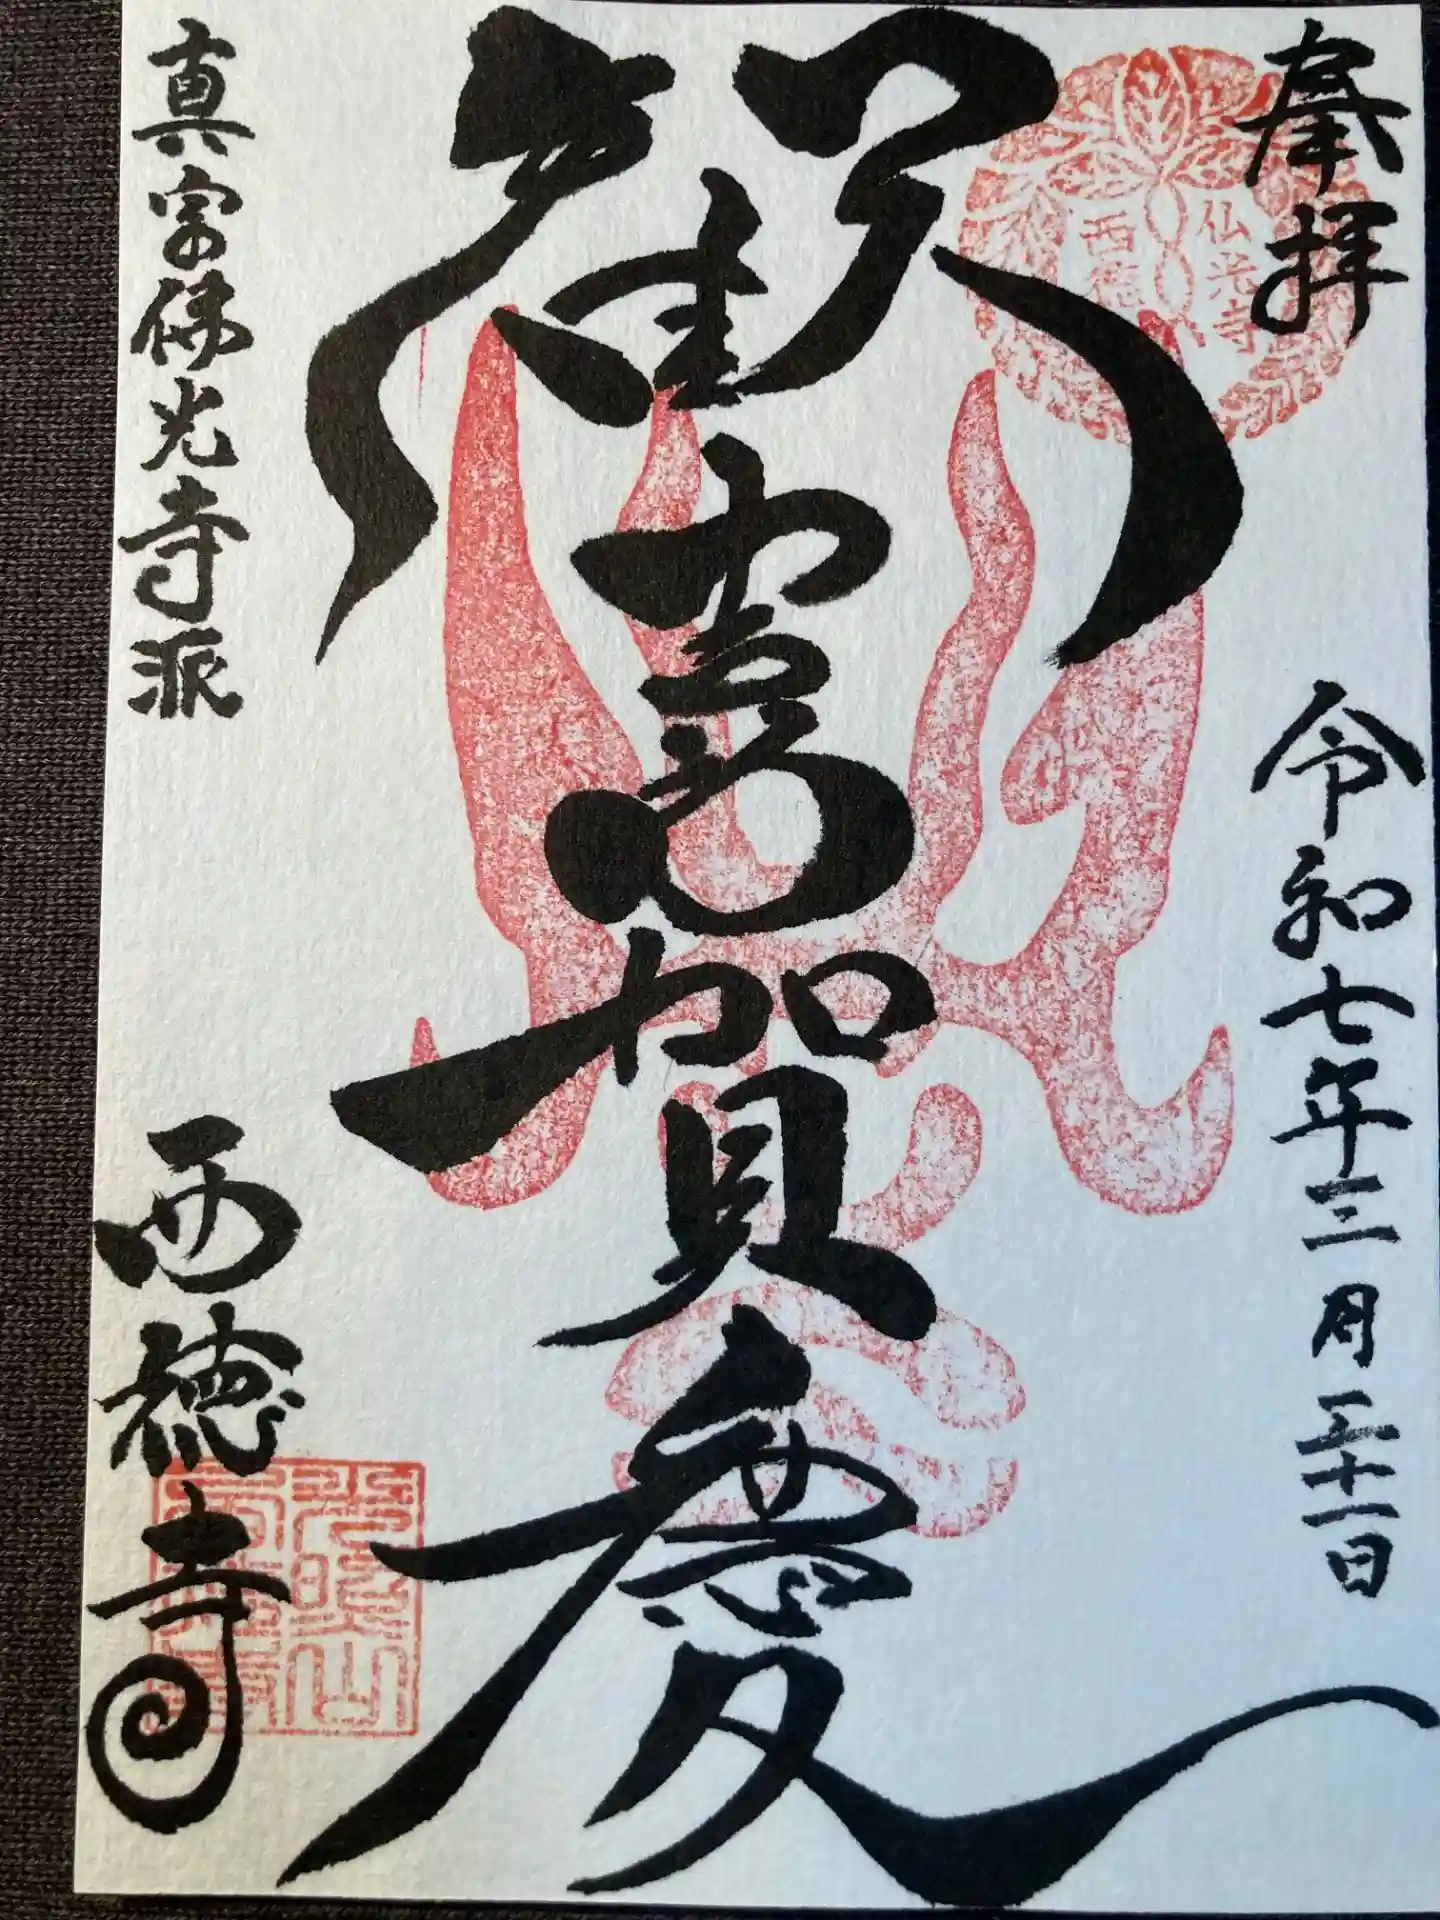 奉拝
令和七年三月三十一日
仏光寺
西徳
歓喜賀慶
真宗佛光寺派
西徳寺
光照山